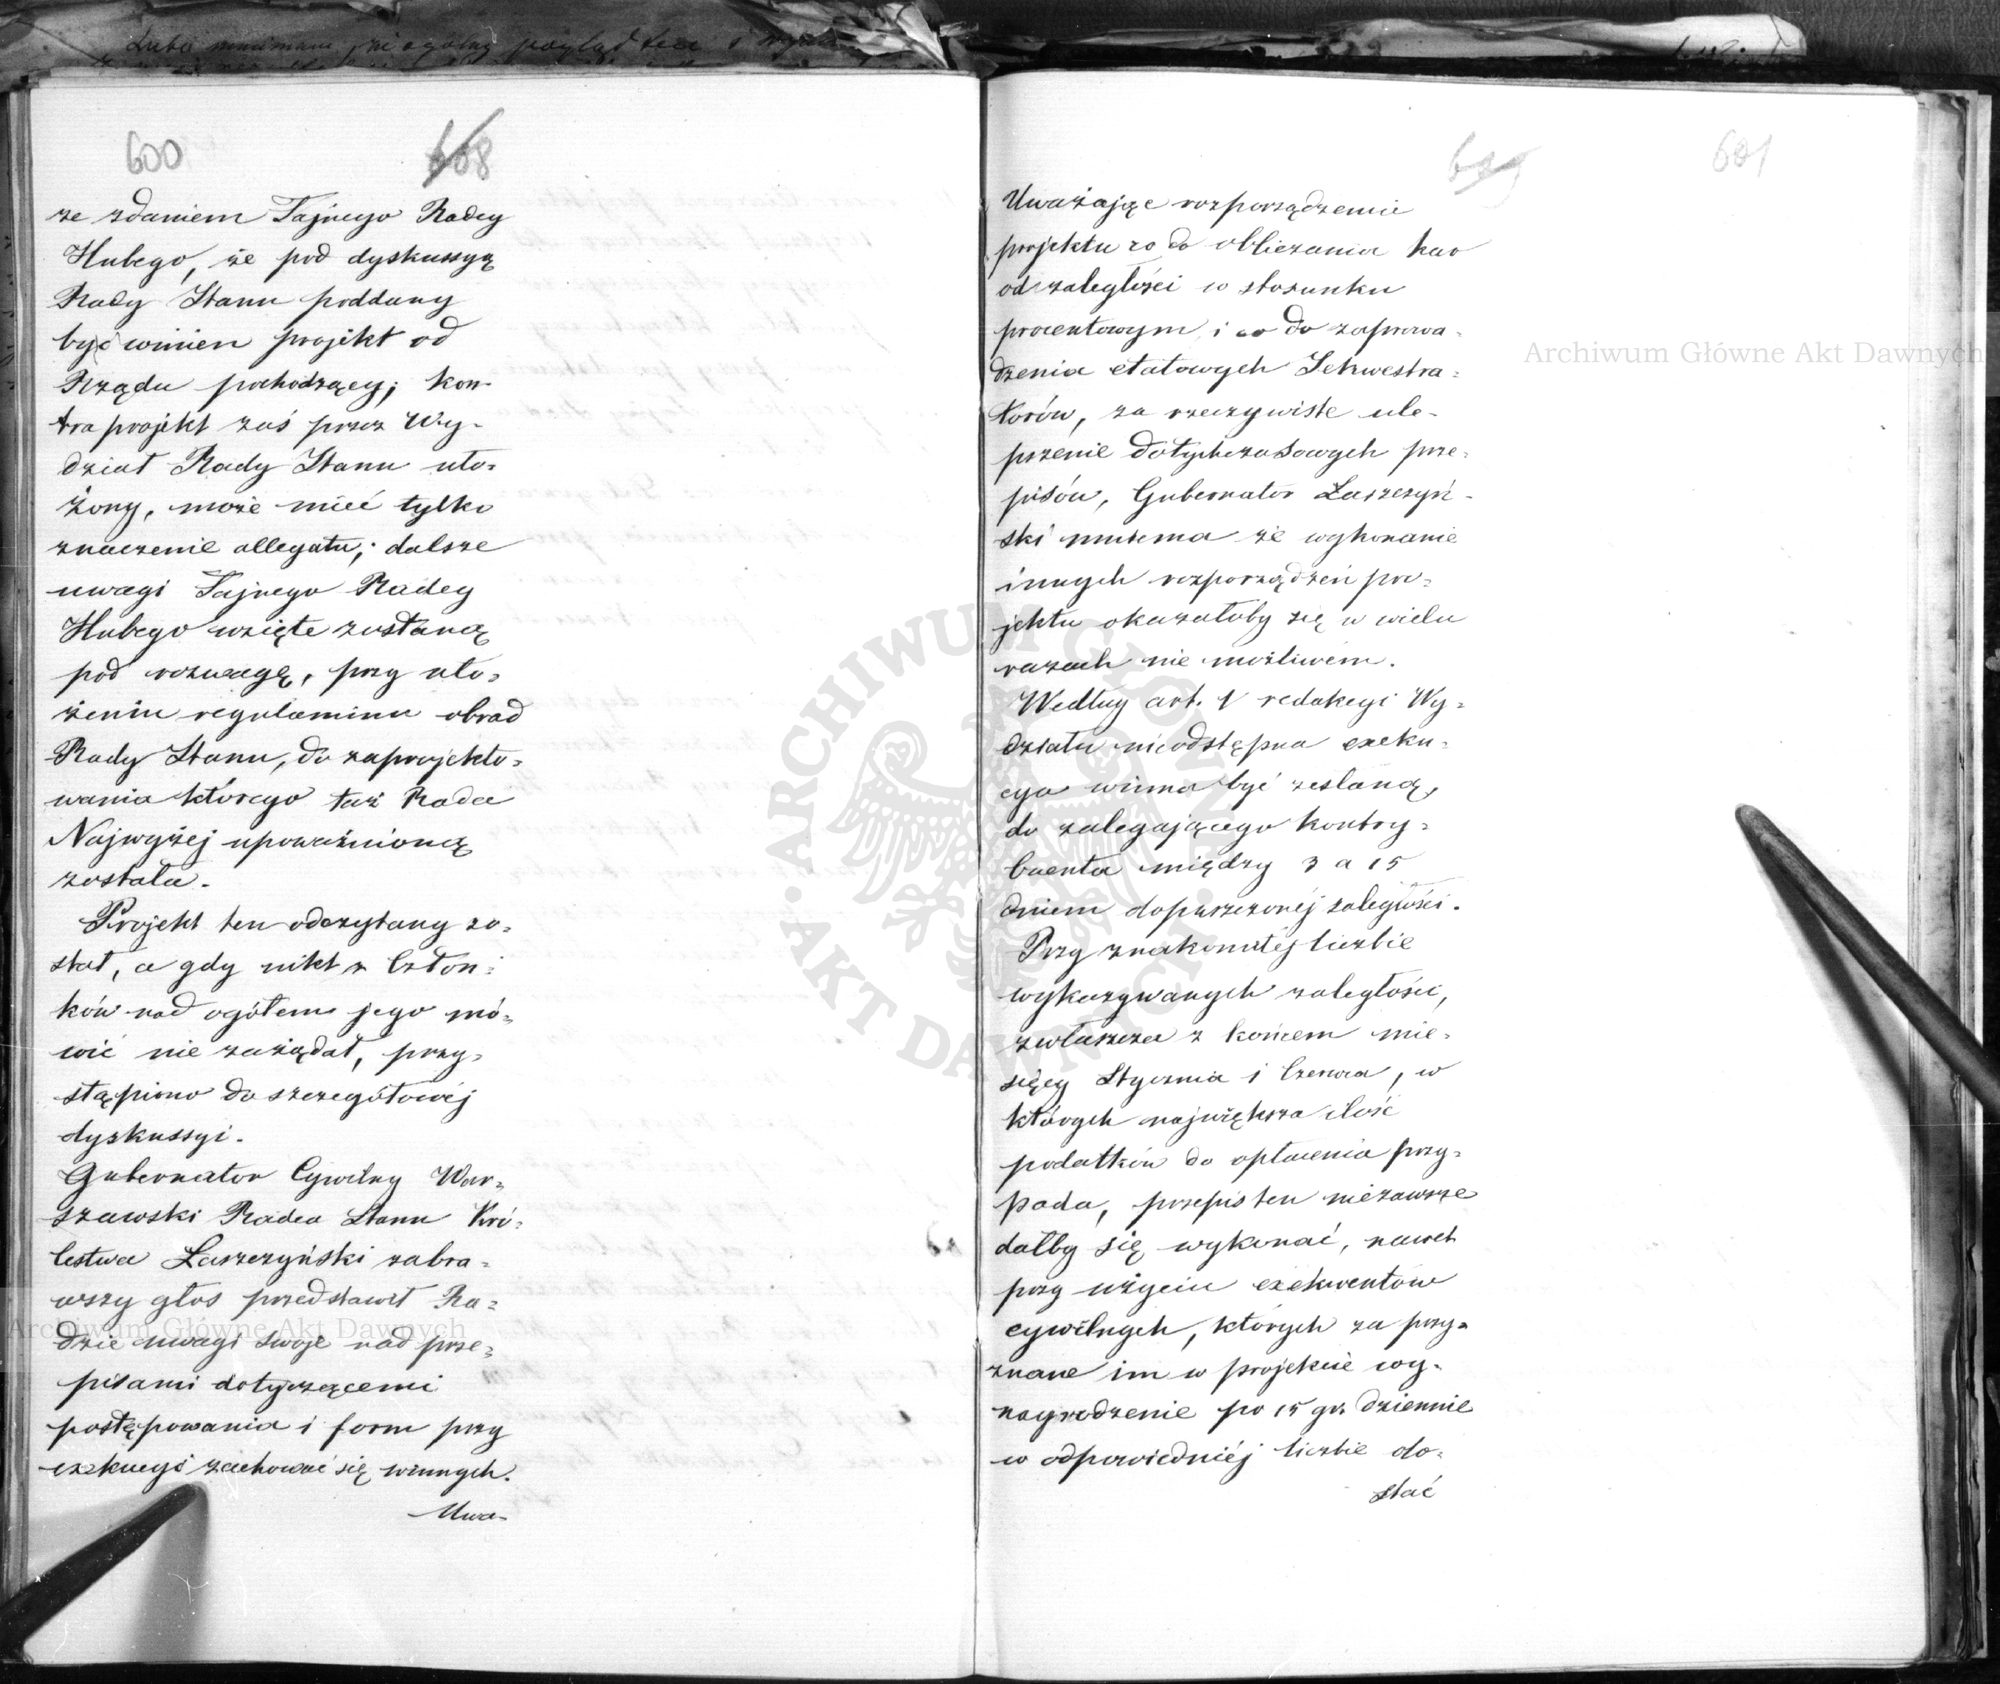 600 608
ze zdaniem Tajnego Radcy
Hubego, że pod dyskussyą
Rady Stanu poddany
być winien projekt od
Rządu pochodzący; kon-
tra projekt zaś przez Wy-
dział Rady Stanu uło-
żony, może mieć tylko
znaczenie allegatu; dalsze
uwagi Tajnego Radcy
Hubego wzięte zostaną
pod rozwagę, przy uło-
żeniu regulaminu obrad
Rady Stanu, do zaprojekto-
wania którego taż Rada
Najwyżej upoważnioną
została.
Projekt ten odczytany zo-
stał, a gdy nikt z Człon-
ków nad ogółem jego mó-
wić nie zażądał, przy-
stąpiono do szczegółowéj
dyskussyi.
Gubernator Cywilny War-
szawski Radca Stanu Kró-
lestwa Łaszczyński zabra-
wszy głos przedstawił Ra-
dzie uwagi swoje nad prze-
pisami dotyczącemi
postępowania i form przy
exekucyi zachować się winnych.
Uwa-
609 601
Uważając rozporządzenie
projektu co do obliczania kar
od zaległości w stosunku
procentowym i co do zaprowa-
dzenia etatowych Sekwestra-
torów, za rzeczywiste ule-
pszenie dotychczasowych prze-
pisów, Gubernator Łaszczyń-
ski mniema że wykonanie
innych rozporządzeń pro-
jektu okazałoby się w wielu
razach nie możliwem.
Według art. 1 redakcyi Wy-
działu nieodstępna exeku-
cya winna być zesłaną,
do zalegającego kontry-
buenta między 3 a 15
dniem dopuszczonéj zaległości.
Przy znakomitéj liczbie
wykazywanych zaległości,
zwłaszcza z końcem mie-
sięcy Stycznia i Czerwca, w
których największa ilość
podatków do opłacenia przy-
pada, przepis ten niezawsze
dałby się wykonać, nawet
przy użyciu exekwentów
cywilnych, których za przy-
znane im w projekcie wy-
nagrodzenie po 15 gr. dziennie
w odpowiedniéj liczbie do-
stać
Archiwum Główne Akt Dawnych
Archiwum Główne Akt Dawnych
ARCHIWUM GŁÓWNE
AKT DAWNYCH